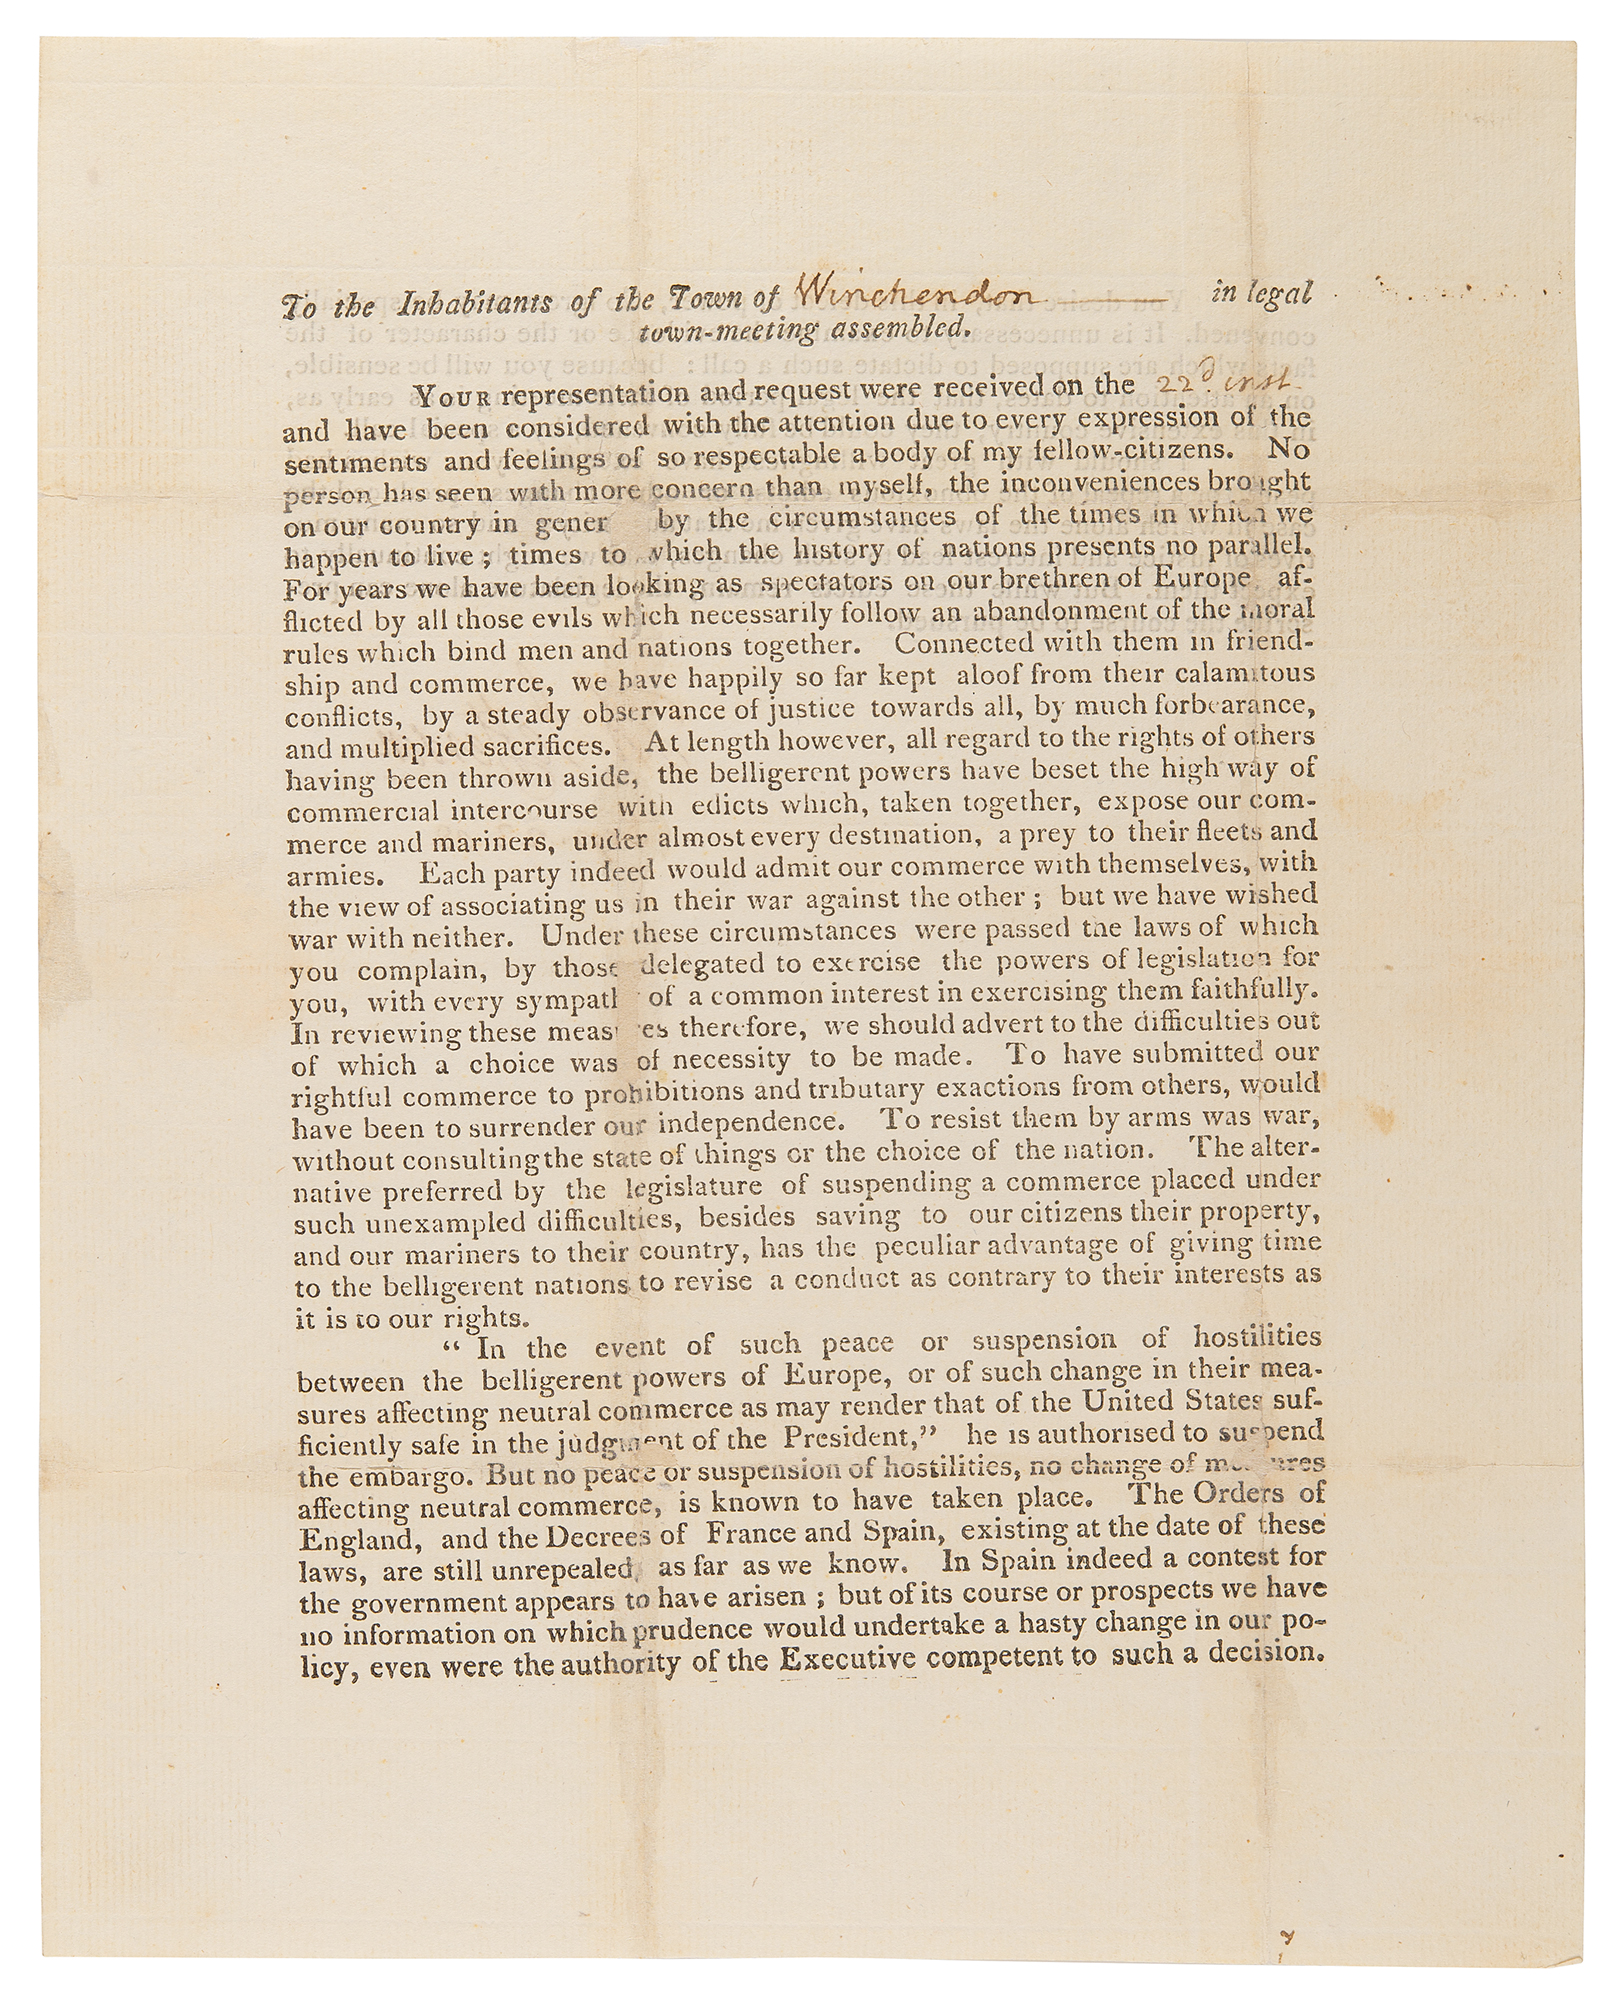 To the Inhabitants of the Town of Winchendon in legal
town-meeting assembled.
YOUR representation and request were received on the 22d inst.
and have been considered with the attention due to every expression of the
sentiments and feelings of so respectable a body of my fellow-citizens. No
person has seen with more concern than myself, the inconveniences brought
on our country in gener by the circumstances of the times in which we
happen to live ; times to which the history of nations presents no parallel.
For years we have been looking as spectators on our brethren of Europe af-
flicted by all those evils which necessarily follow an abandonment of the moral
rules which bind men and nations together. Connected with them in friend-
ship and commerce, we have happily so far kept aloof from their calamitous
conflicts, by a steady observance of justice towards all, by much forbearance,
and multiplied sacrifices. At length however, all regard to the rights of others
having been thrown aside, the belligerent powers have beset the high way of
commercial intercourse with edicts which, taken together, expose our com-
merce and mariners, under almost every destination, a prey to their fleets and
armies. Each party indeed would admit our commerce with themselves, with
the view of associating us in their war against the other ; but we have wished
war with neither. Under these circumstances were passed the laws of which
you complain, by those delegated to exercise the powers of legislation for
you, with every sympath of a common interest in exercising them faithfully.
In reviewing these measures therefore, we should advert to the difficulties out
of which a choice was of necessity to be made. To have submitted our
rightful commerce to prohibitions and tributary exactions from others, would
have been to surrender our independence. To resist them by arms was war,
without consulting the state of things or the choice of the nation. The alter-
native preferred by the legislature of suspending a commerce placed under
such unexampled difficulties, besides saving to our citizens their property,
and our mariners to their country, has the peculiar advantage of giving time
to the belligerent nations to revise a conduct as contrary to their interests as
it is to our rights.
“ In the event of such peace or suspension of hostilities
between the belligerent powers of Europe, or of such change in their mea-
sures affecting neutral commerce as may render that of the United States suf-
ficiently safe in the judgment of the President,” he is authorised to suspend
the embargo. But no peace or suspension of hostilities, no change of measures
affecting neutral commerce, is known to have taken place. The Orders of
England, and the Decrees of France and Spain, existing at the date of these
laws, are still unrepealed, as far as we know. In Spain indeed a contest for
the government appears to have arisen ; but of its course or prospects we have
no information on which prudence would undertake a hasty change in our po-
licy, even were the authority of the Executive competent to such a decision.